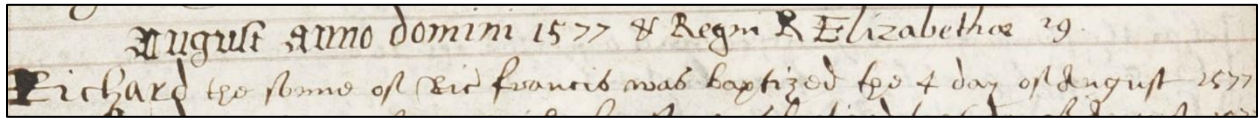 August Anno domini 1577 & Regni R Elizabethæ 19.
Richard the sonne of Ric francis was baptized the 4 day of August 1577